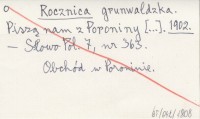 Rocznica grunwaldzka.
Piszą nam z Poroniny [...]. 1902.
— Słowo Pol. 7, nr 363.
Obchód w Poroninie.